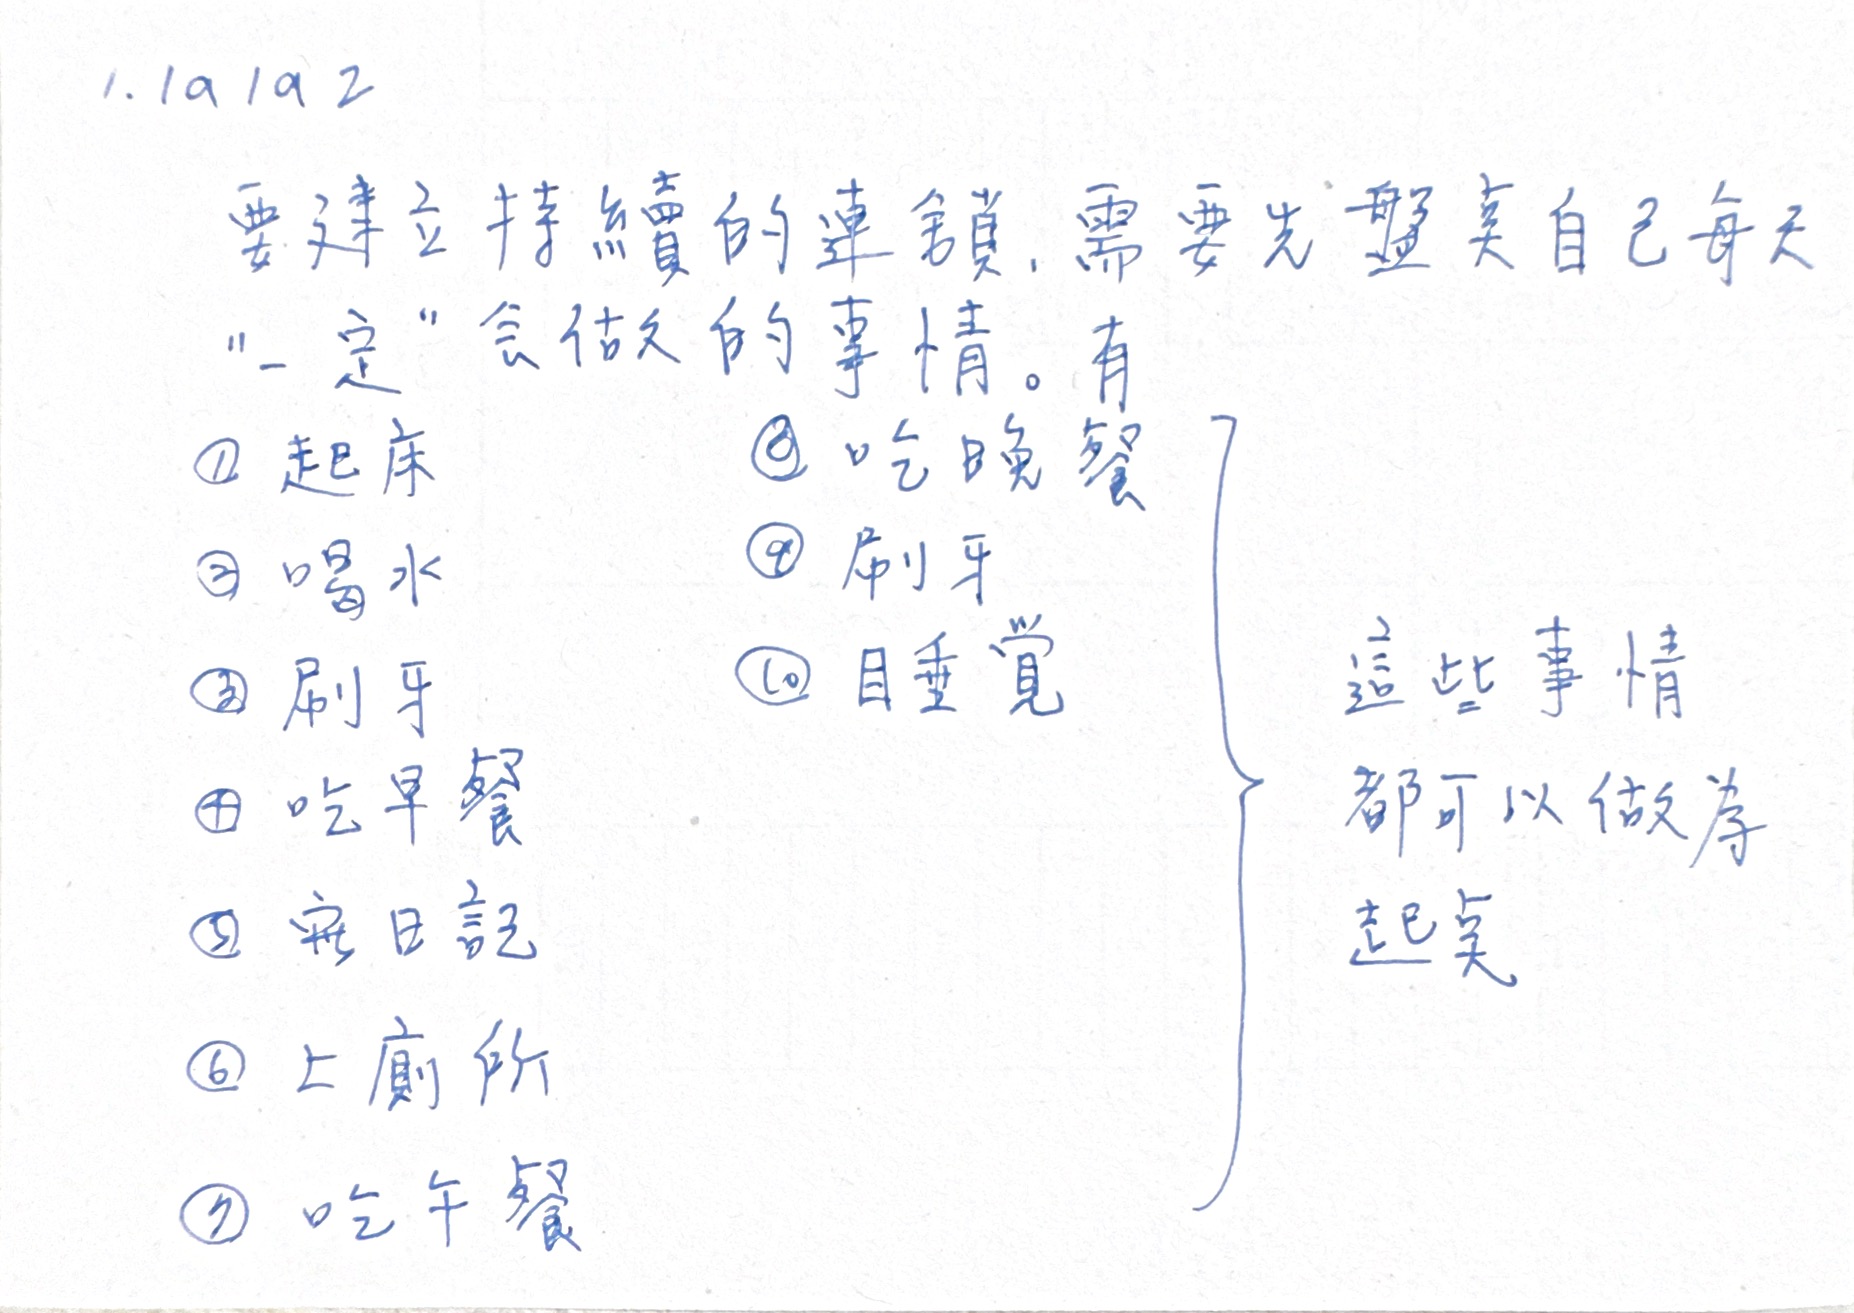 1.1a1a2
要建立持續的連鎖,需要先盤点自己每天
"一定"会做的事情。有
① 起床
② 喝水
③ 刷牙
④ 吃早餐
⑤ 寫日記
⑥ 上廁所
⑦ 吃午餐
⑧ 吃晚餐
⑨ 刷牙
⑩ 睡覚
這些事情
都可以做為
起点